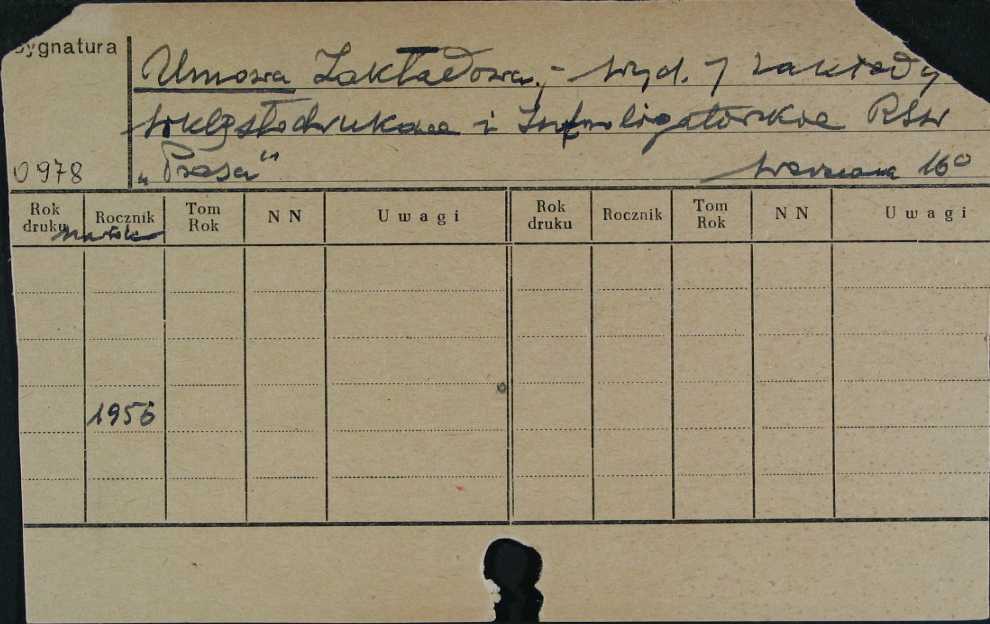 Sygnatura
Umowa Zakładowa, - Wyd. 7 Zakłady
Wklęsłodrukowe i Introligatorskie RSW
0978 „Prasa" Warszawa 16°
Rok druku Rocznik Tom Rok NN Uwagi Rok druku Rocznik Tom Rok NN Uwagi
1956